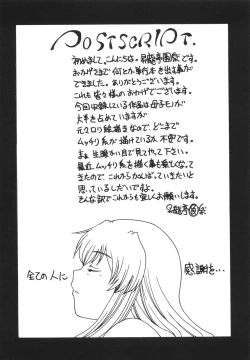 POSTSCRIPT.
初めまして、こんにちは。昇龍亭圓楽です。
おかげさまで何とか単行本を出す事が
できました。ありがとうございます。
これも皆々様のおかげでございます。
今回収録している作品は母子モノが
大半を占めていますが
元々ロリ絵描きなので、どこまで
ムッチリ系が描けているか不安です。
まぁ生暖かい目で見てやって下さい。
最近、ムッチリ系を描く事も楽しくなって
きたので、これからもがんばっていきたいと
思っているしだいです。
そんな訳でこれからも宜しくお願いします。
全ての人に
感謝を…